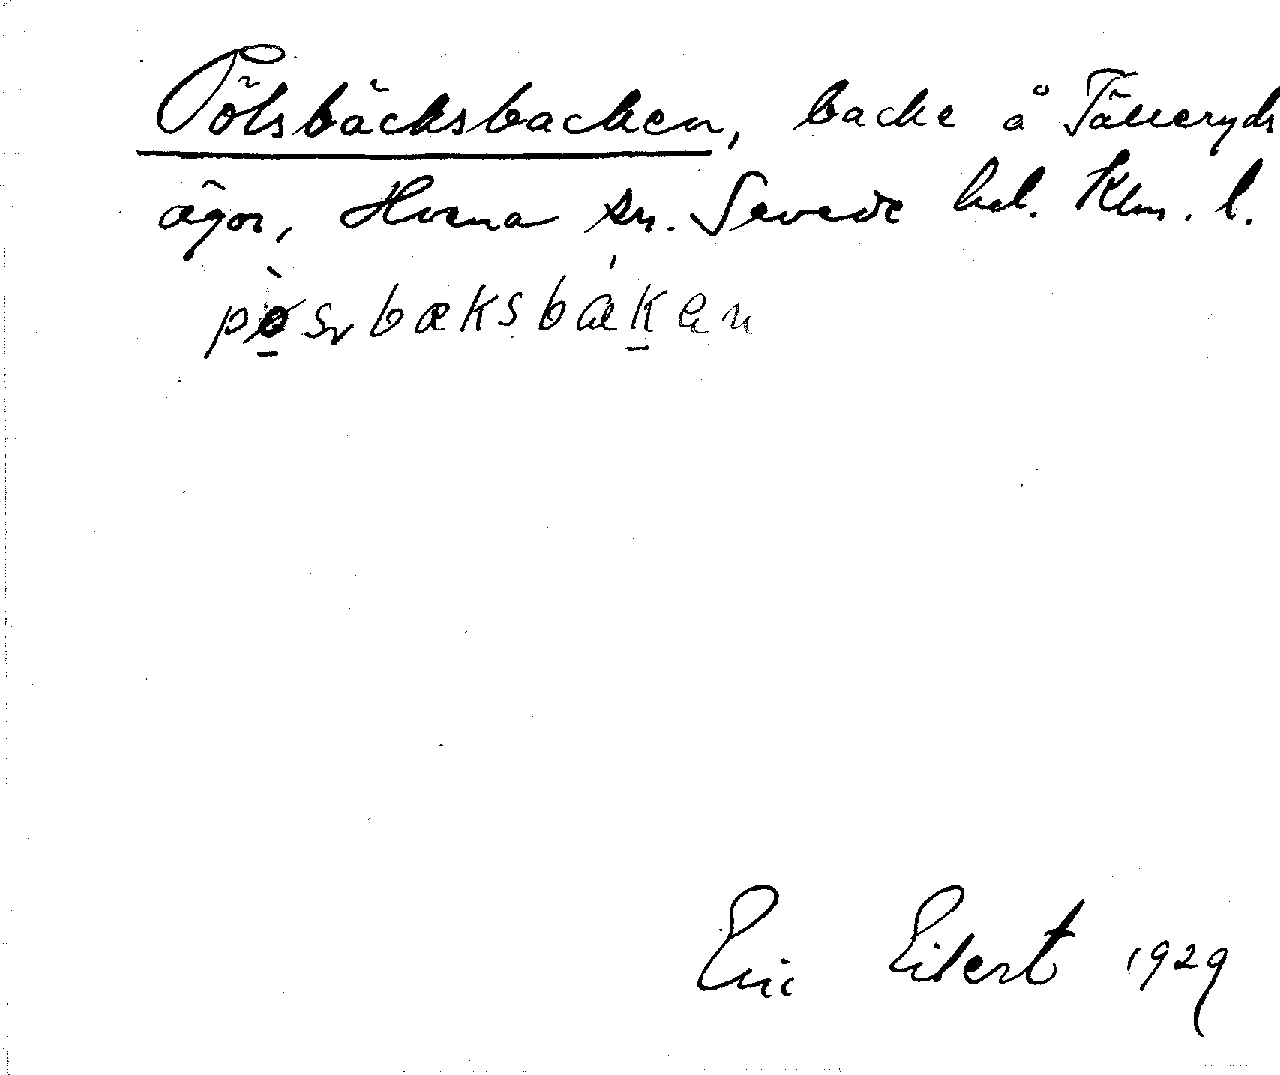 Pölsbäcksbacken, backe å Tälleryds
ägor, Hvena sn. Sevede hd. Klm. l.
pø̀sbæksbákan
Eric Eilert 1929